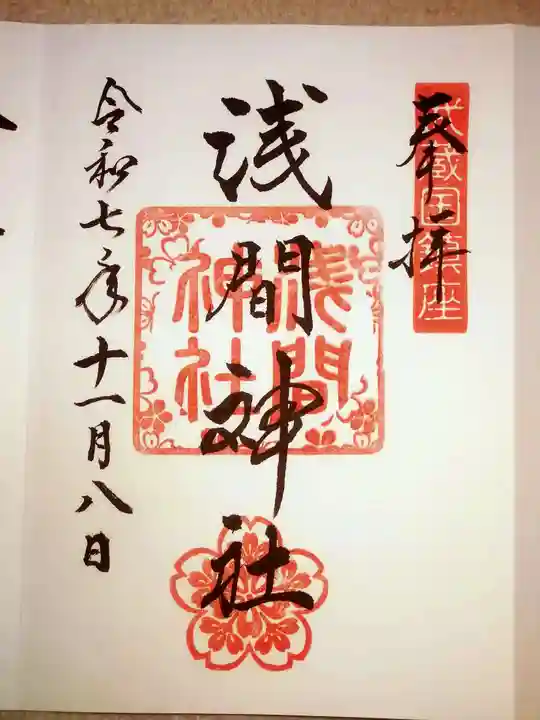 武蔵国鎮座
奉拝
浅間神社
浅間
神社
令和七年十一月八日